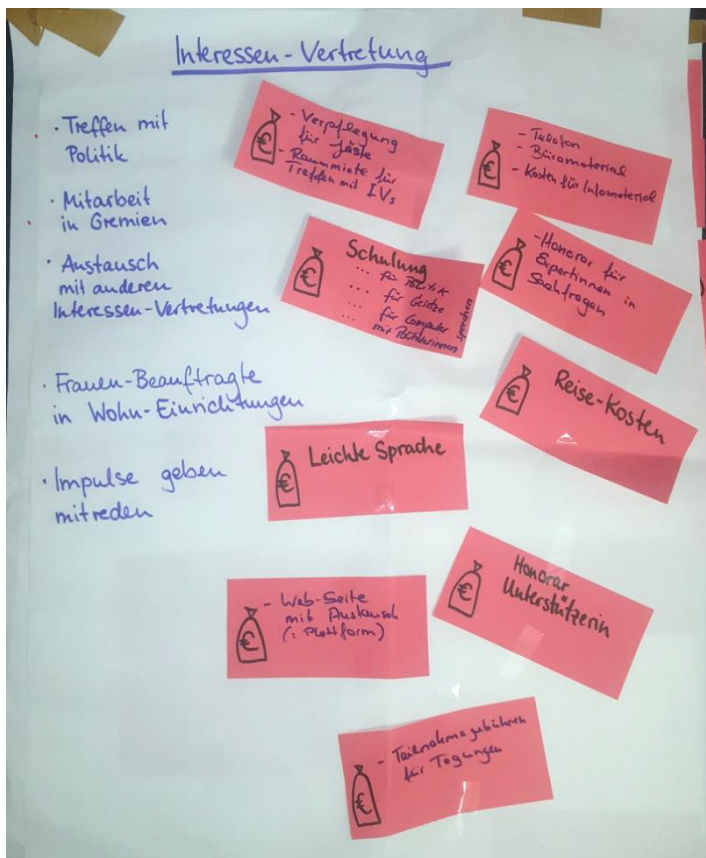 Interessen-Vertretung
· Treffen mit
Politik
· Mitarbeit
in Gremien
· Austausch
mit anderen
Interessen-Vertretungen
· Frauen-Beauftragte
in Wohn-Einrichtungen
· Impulse geben
mitreden
€
- Verpflegung
für Gäste
- Raummiete für
Treffen mit IVs
€
- Telefon
- Büromaterial
- Kosten für Infomaterial
€
Schulung
... für Politik
... für Gesetze
... für Computer
... mit Politikerinnen
sprechen
€
- Honorar für
Expertinnen in
Sachfragen
€
Reise-Kosten
€
Leichte Sprache
€
Honorar
Unterstützerin
€
- Web-Seite
mit Austausch
(: Plattform)
€
- Teilnahmegebühren
für Tagungen